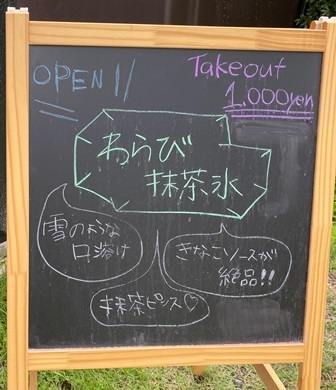 OPEN !!
Takeout
1,000yen
わらび
抹茶氷
雪のような
口溶け
きなこソースが
絶品!!
抹茶ピンス♡